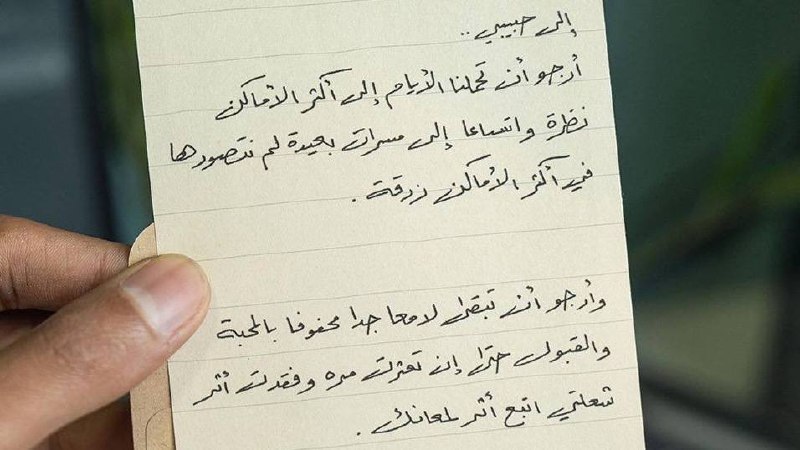 إلى حبيبي ..
أرجو أن تحملنا الأيام إلى أكثر الأماكن
نظرة واتساعا إلى مسرات بعيدة لم نتصورها
في أكثر الأماكن زرقة .
وأرجو أن تبقى لامعا جدا محفوفا بالمحبة
والقبول حتى إن تعثرت مره وفقدت أثر
شعلتي اتبع أثر لمعانك .